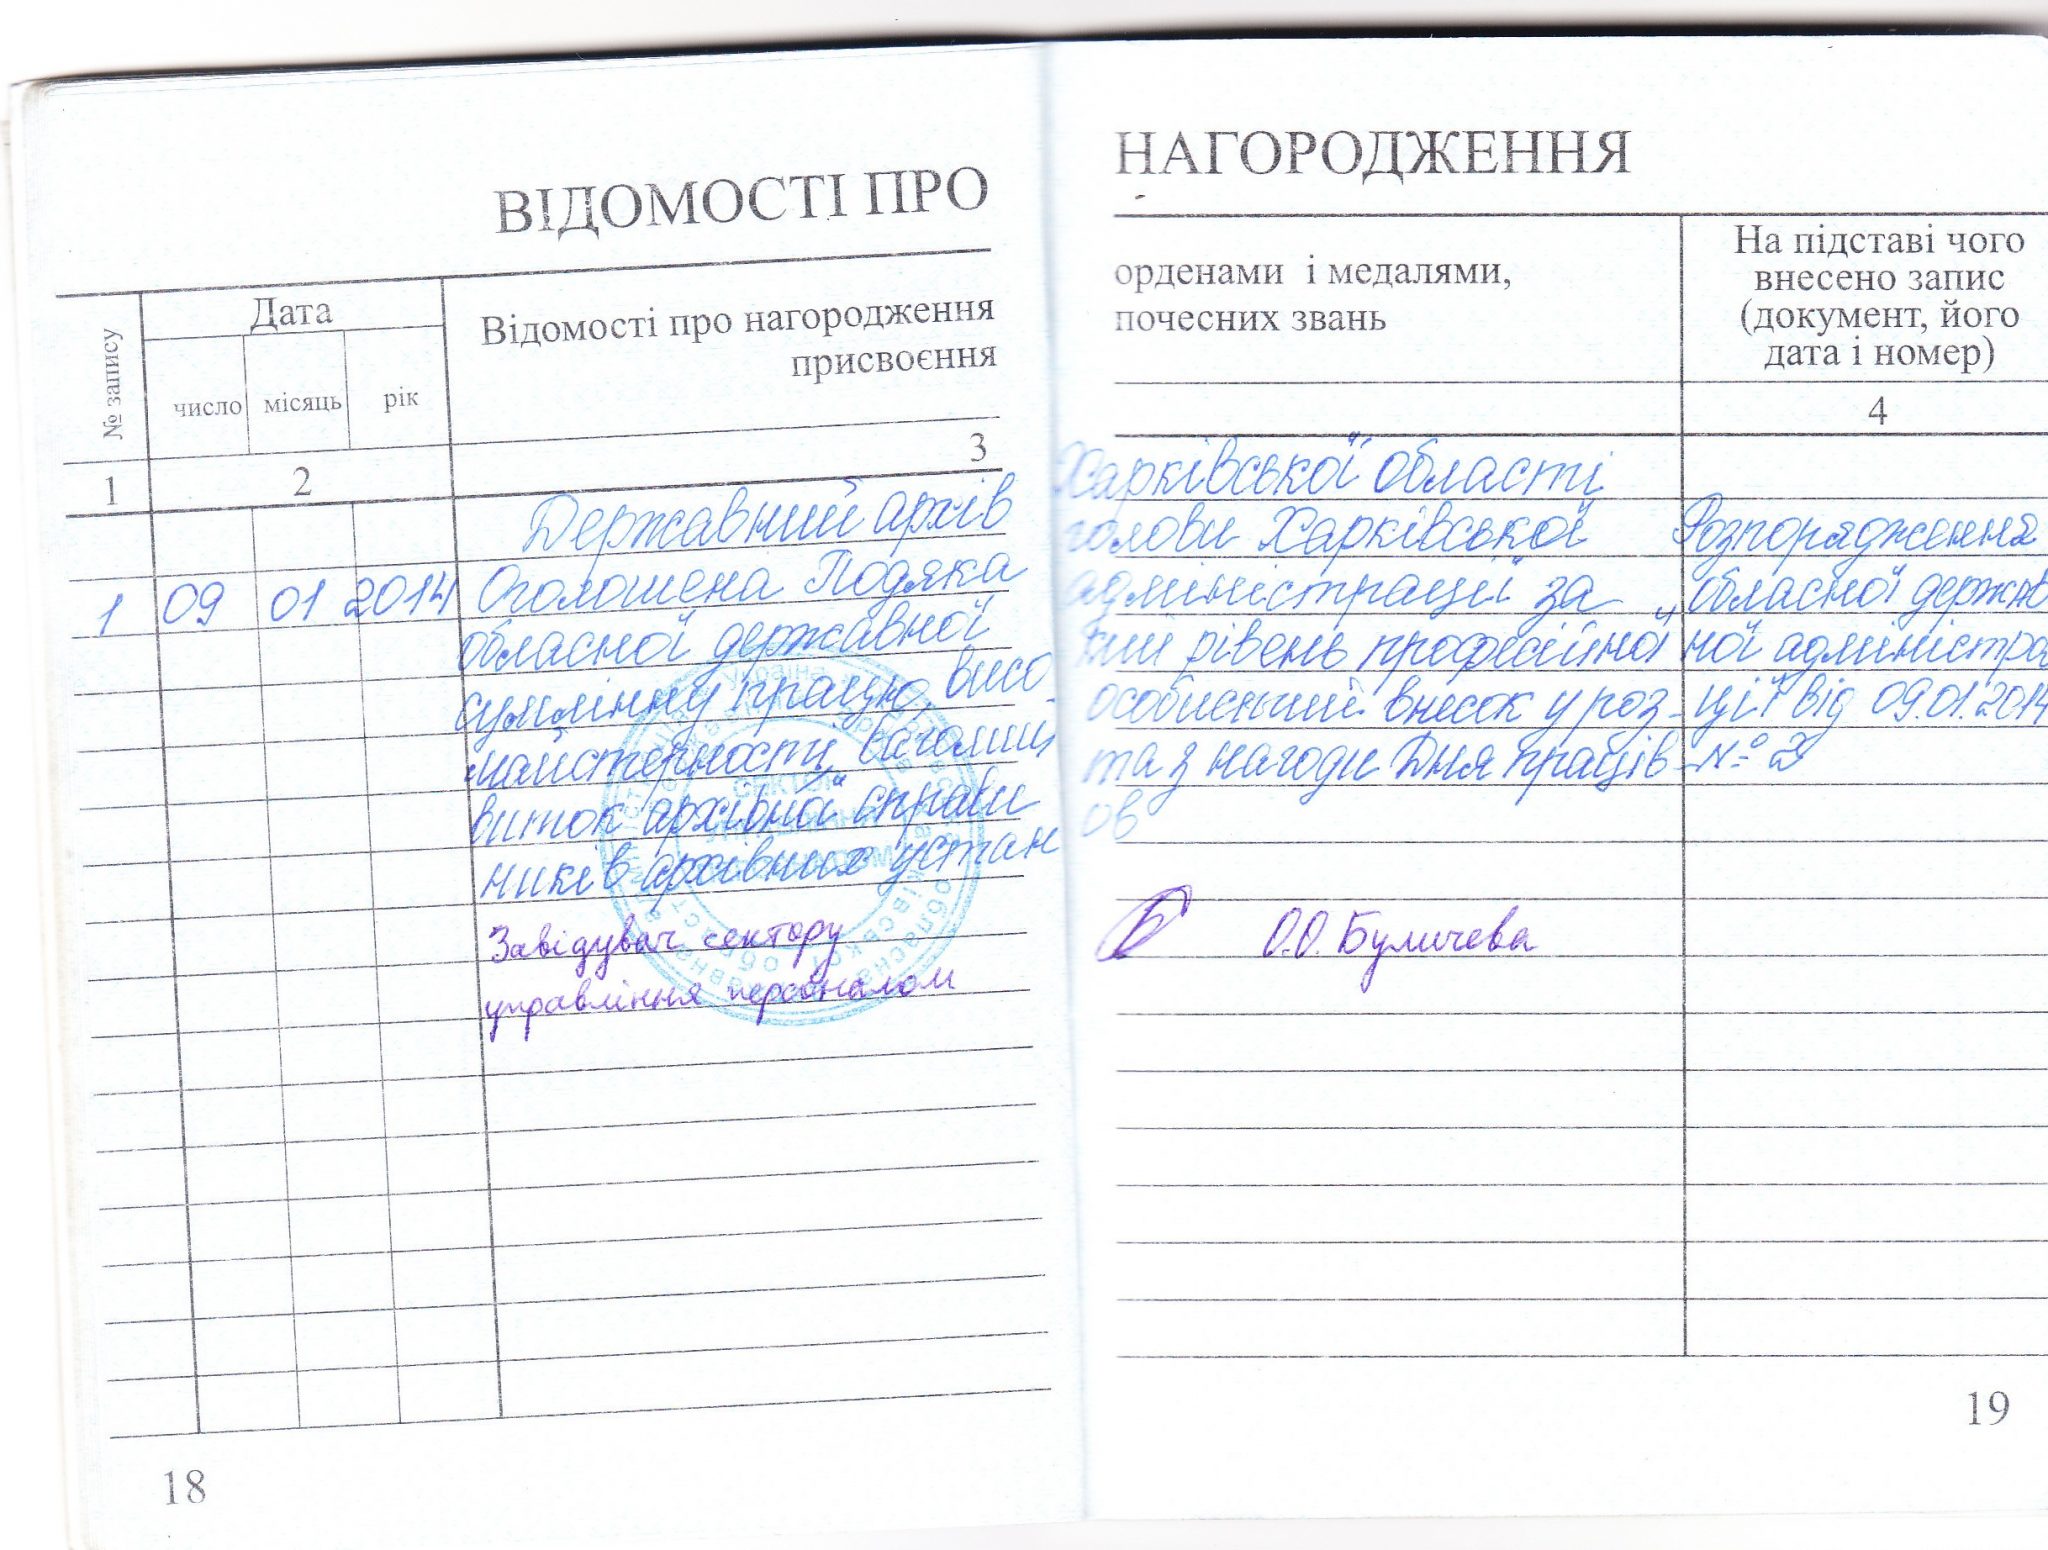 ВІДОМОСТІ ПРО НАГОРОДЖЕННЯ
№ запису
Дата
число місяць рік
Відомості про нагородження орденами і медалями,
присвоєння почесних звань
На підставі чого
внесено запис
(документ, його
дата і номер)
1 2 3 4
Державний архів Харківської області
1 09 01 2014 Оголошена Подяка голови Харківської Розпорядження
обласної державної адміністрації за обласної держав
сумлінну працю, висо кий рівень професійної ної адміністра
майстерності, вагомий особистий внесок у роз- ції від 09.01.2014
виток архівної справи та з нагоди Дня праців- № 2
ників архівних установ
Завідувач сектору О.О. Буличева
управління персоналом
18
19